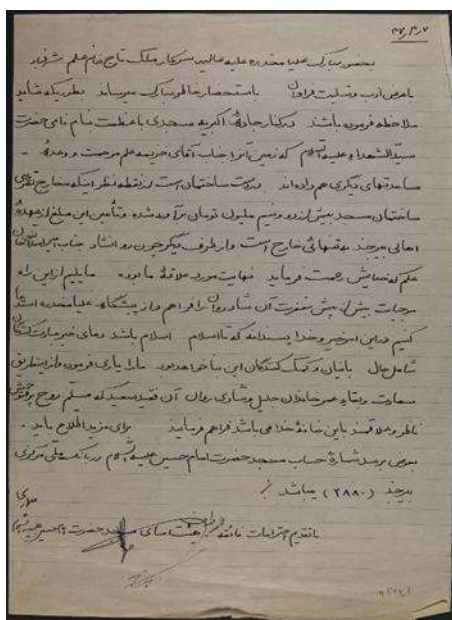 ۴۷/۴/۷
بحضور مبارک علیا مخدره علیه عالیه سرکار ملک تاج خانم علم
با عرض ادب و تسلیت فراوان باستحضار خاطر مبارک میرساند بطوریکه شاید
ملاحظه فرموده باشند در کنار جاده مسجدی با عظمت بنام نامی حضرت
سیدالشهداء علیه السلام که زمین آنرا جناب آقای خزیمه علم مرحمت و وعده
مساعدتهای دیگری هم داده اند در دست ساختمان است از نقطه نظر اینکه مخارج تقریبی
ساختمان مسجد بیش از دو و نیم ملیون تومان برآورد شده و تأمین این مبلغ از عهده
اهالی بیرجند به تنهائی خارج است و از طرف دیگر چون روانشاد جناب
علم که خدایش رحمت فرماید نهایت مورد علاقه ما بوده مایلیم از این راه
موجبات بیش از پیش مغفرت آن شادروان را فراهم و از پیشگاه علیا مخدره استدعا
کنیم در این امر خیر و خدا پسندانه که تا اسلام اسلام باشد دعای خیر عبادت کنندگان
شامل حال بانیان و کمک کنندگان این بنا خواهد بود ما را یاری فرموده و از اینطریق
سعادت و بقاء عمر خاندان جلیل و شادی روان آن فقید سعید که مسلم روح پرفتوحش
ناظر و علاقمند باین خانه خدا می باشد فراهم فرمایند برای مزید اطلاع باید
بعرض برسد شماره حساب مسجد حضرت امام حسین علیه السلام در بانک ملی مرکزی
بیرجند (۲۸۸۰) میباشد
با تقدیم احترامات فائقه هیئت امنای مسجد حضرت امام حسین